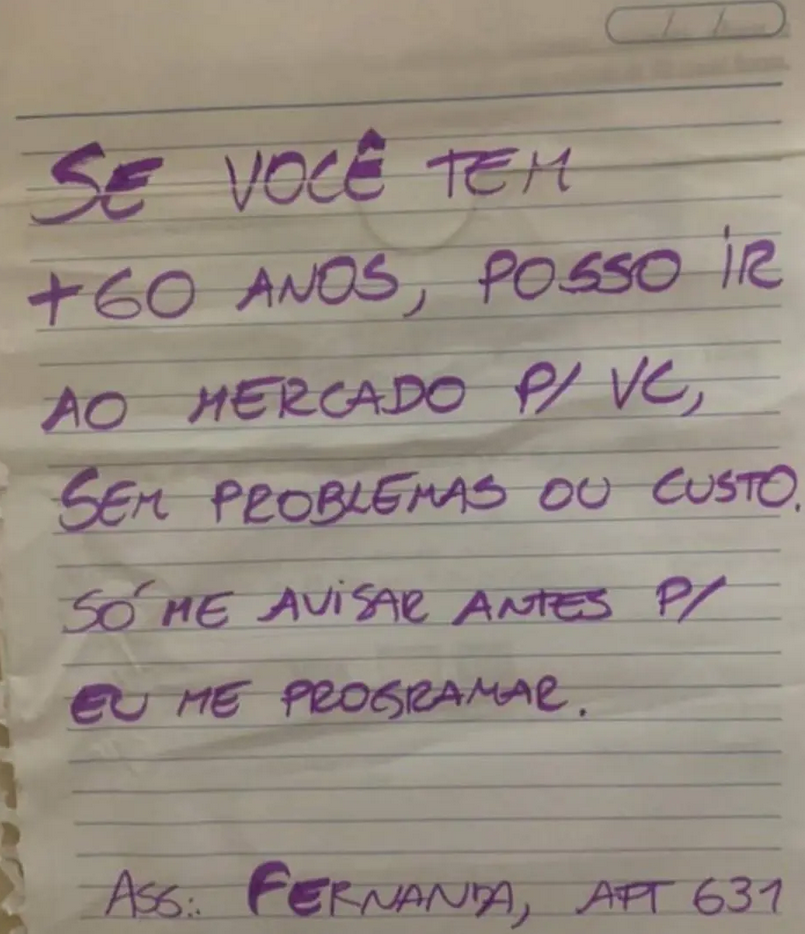 SE VOCÊ TEM
+60 ANOS, POSSO IR
AO MERCADO P/ VC,
SEM PROBLEMAS OU CUSTO.
SÓ ME AVISAR ANTES P/
EU ME PROGRAMAR.
ASS.: FERNANDA, APT 631